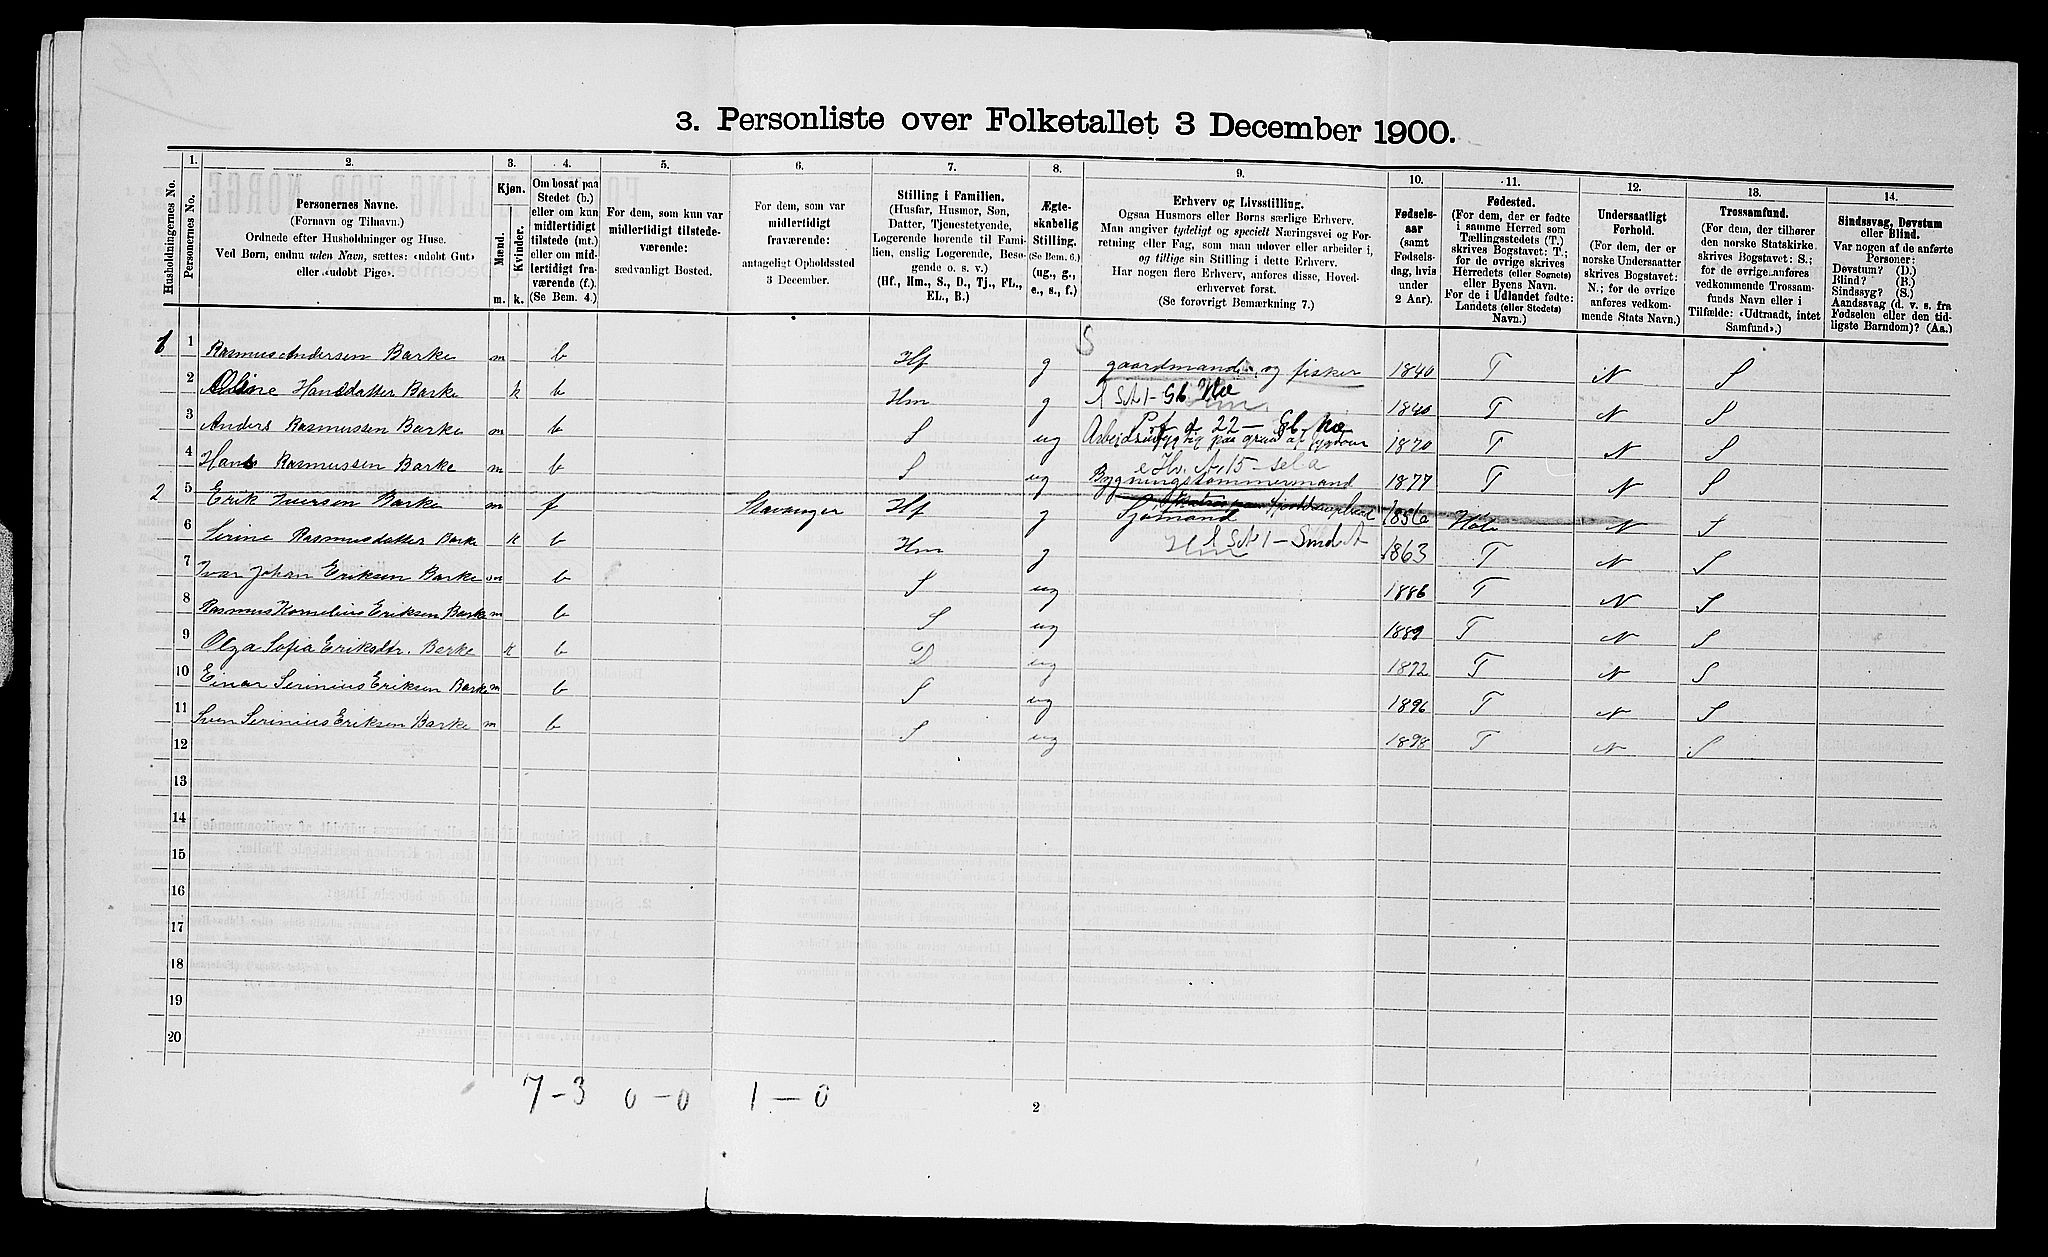 3. Personliste over Folketallet 3 December 1900.
Husholdningernes No.
1.
Personernes No.
2.
Personernes Navne.
(Fornavn og Tilnavn.)
Ordnede efter Husholdninger og Huse.
Ved Børn, endnu uden Navn, sættes: «udøbt Gut»
eller «udøbt Pige».
3.
Kjøn.
Mænd.
Kvinder.
m.
k.
4.
Om bosat paa
Stedet (b.)
eller om kun
midlertidigt
tilstede (mt.)
eller om mid-
lertidigt fra-
værende (f.).
(Se Bem. 4.)
5.
For dem, som kun var
midlertidigt tilstede-
værende:
sædvanligt Bosted.
6.
For dem, som var
midlertidigt
fraværende:
antageligt Opholdssted
3 December.
7.
Stilling i Familien.
(Husfar, Husmor, Søn,
Datter, Tjenestetyende,
Logerende hørende til Fami-
lien, enslig Logerende, Besø-
gende o. s. v.)
(Hf., Hm., S., D., Tj., FL.,
EL., B.)
8.
Ægte-
skabelig
Stilling.
(Se Bem. 6.)
(ug., g.,
e., s., f.)
9.
Erhverv og Livsstilling.
Ogsaa Husmors eller Børns særlige Erhverv.
Man angiver tydeligt og specielt Næringsvei og For-
retning eller Fag, som man udøver eller arbeider i,
og tillige sin Stilling i dette Erhverv.
Har nogen flere Erhverv, anføres disse, Hoved-
erhvervet først.
(Se forøvrigt Bemærkning 7.)
10.
Fødsels-
aar
(samt
Fødsels-
dag, hvis
under
2 Aar).
11.
Fødested.
(For dem, der er fødte
i samme Herred som
Tællingsstedets (T.)
skrives Bogstavet: T.;
for de øvrige skrives
Herredets (eller Sognets)
eller Byens Navn.
For de i Udlandet fødte:
Landets (eller Stedets)
Navn.)
12.
Undersaatligt
Forhold.
(For dem, der er
norske Undersaatter
skrives Bogstavet:
N.; for de øvrige
anføres vedkom-
mende Stats Navn.)
13.
Trossamfund.
(For dem, der tilhører
den norske Statskirke,
skrives Bogstavet: S.;
for de øvrige anføres
vedkommende Trossam-
funds Navn eller i
Tilfælde: «Udtraadt, intet
Samfund».)
14.
Sindssvag, Døvstum
eller Blind.
Var nogen af de anførte
Personer:
Døvstum? (D.)
Blind? (B.)
Sindssyg? (S.)
Aandssvag (d. v. s. fra
Fødselen eller den tid-
ligste Barndom)? (Aa.)
S
1 1 Rasmus Andersen Barke m b Hf g gaardmand og fisker 1840 T N S
2 Oline Hansdatter Barke k b Hm g Hm 1840 T N S
3 Anders Rasmussen Barke m b S ug Arbeidsudygtig paa grund af 1870 T N S
4 Hans Rasmussen Barke m b S ug Bygningstømmermand 1877 T N S
2 5 Erik Iversen Barke m f Stavanger Hf g Sjømand 1856 Hole N S
6 Serine Rasmusdatter Barke k b Hm g Hm 1863 T N S
7 Ivar Johan Eriksen Barke m b S ug 1886 T N S
8 Rasmus Kornelius Eriksen Barke m b S ug 1889 T N S
9 Olga Sofia Eriksdtr. Barke k b D ug 1892 T N S
10 Einar Serinius Eriksen Barke m b S ug 1896 T N S
11 Sven Serinius Eriksen Barke m b S ug 1898 T N S
12
13
14
15
16
17
18
19
20
7 – 3 0 – 0 1 – 0
2